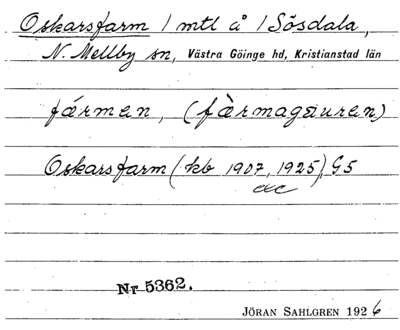 Oskarsfarm 1 mtl å 1 Sösdala,
N. Mellby sn, Västra Göinge hd, Kristianstad län
fármen, (fàrmagɑuren)
Oskarsfarm (kb 1907, 1925), G5
Nr 5362.
JÖRAN SAHLGREN 1926